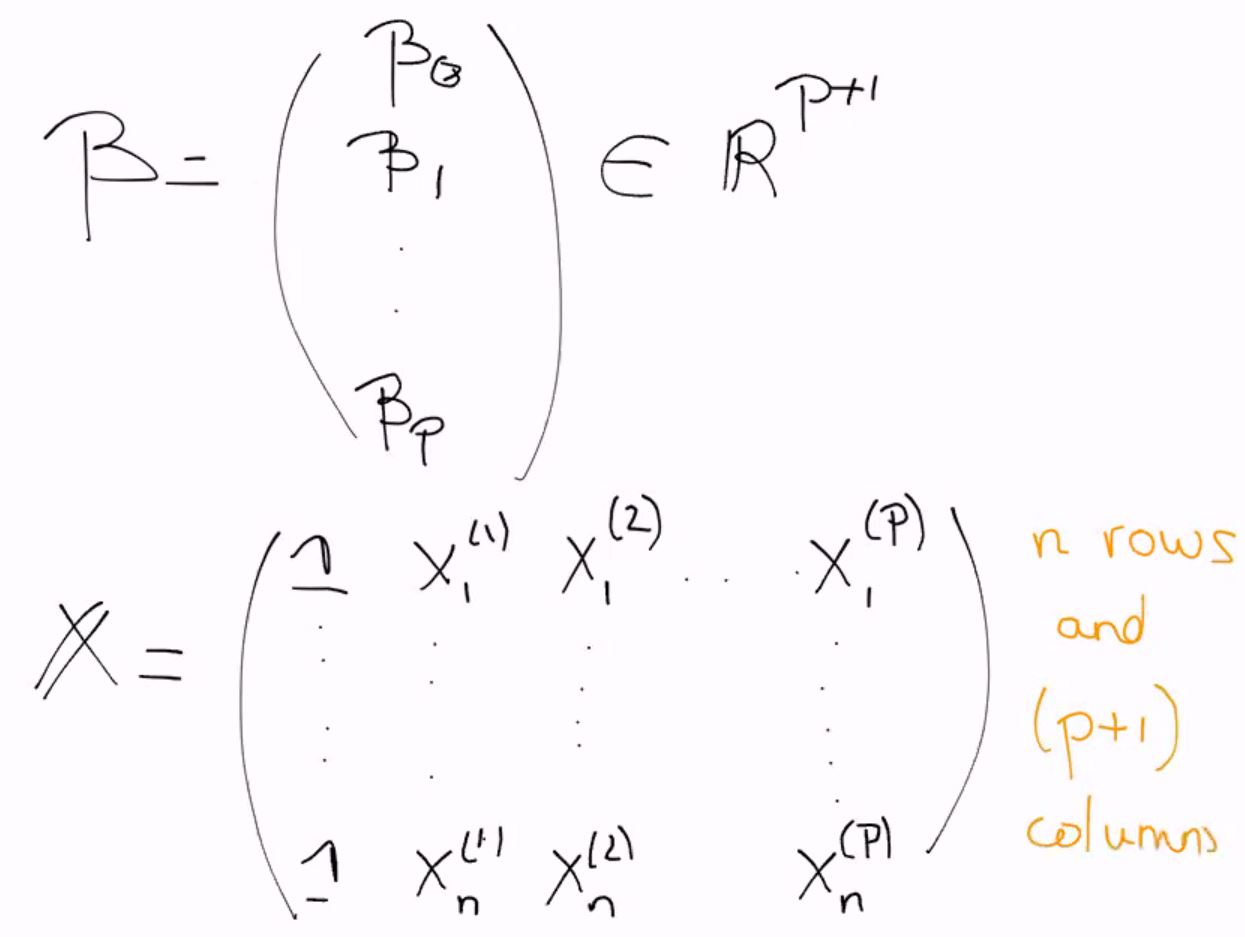 β = ( β₀
β₁
.
.
βₚ ) ∈ ℝ^{p+1}
𝕏 = ( 1 X₁^{(1)} X₁^{(2)} . . . X₁^{(p)}
1 Xₙ^{(1)} Xₙ^{(2)} Xₙ^{(p)} )
n rows
and
(p+1)
columns